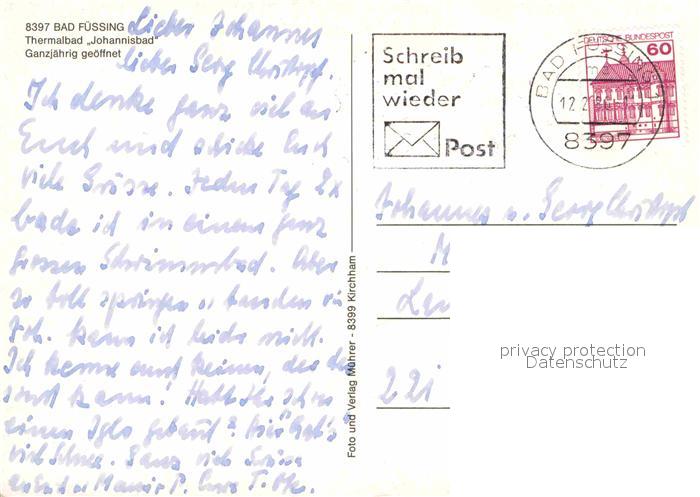 8397 BAD FÜSSING
Thermalbad „Johannisbad"
Ganzjährig geöffnet
Lieber Johannes
lieber Georg Christoph.
Ich denke ganz viel an
Euch und schicke Euch
viele Grüsse. Jeden Tag 2x
bade ich in einem ganz
grossen Schwimmbad. Aber
so toll springen u. tauchen wie
Joh. kann ich leider nicht.
Ich kenne auch keinen, der das
sonst kann! Habt Ihr schon
einen Iglo gebaut? Hier gibt's
viel Schnee. Ganz viele Grüsse
Foto und Verlag Mührer - 8399 Kirchham
Schreib
mal
wieder
Post
DEUTSCHE BUNDESPOST
60
BAD FÜSSING
8397
Johannes u. Georg Christoph
M
221
privacy protection
Datenschutz